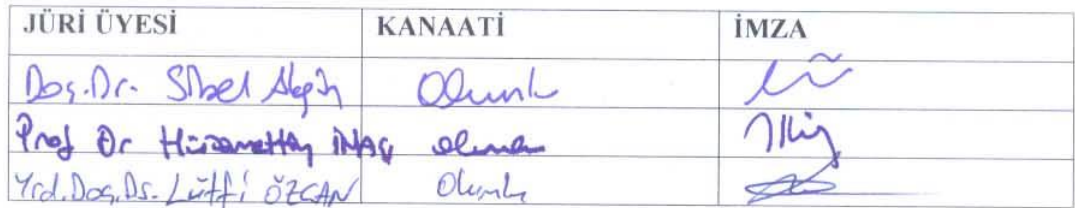 JÜRİ ÜYESİ KANAATİ İMZA
Doç. Dr. Sibel Akgün Olumlu
Prof Dr Hüsamettin İNAÇ olumlu
Yrd. Doç. Dr. Lütfi ÖZCAN Olumlu